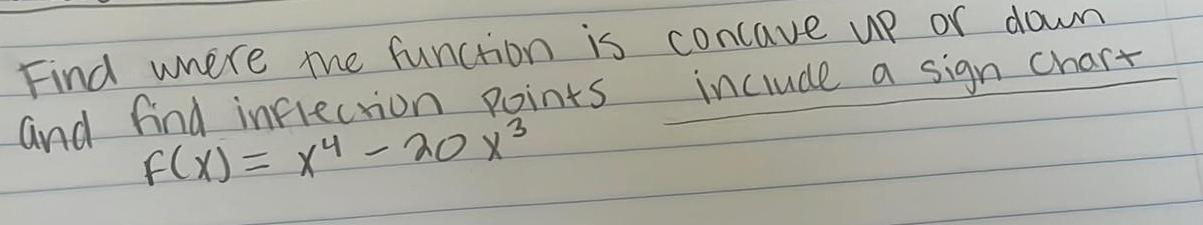 Find where the function is concave up or down
and find inflection points include a sign chart
f(x) = x⁴ - 20x³